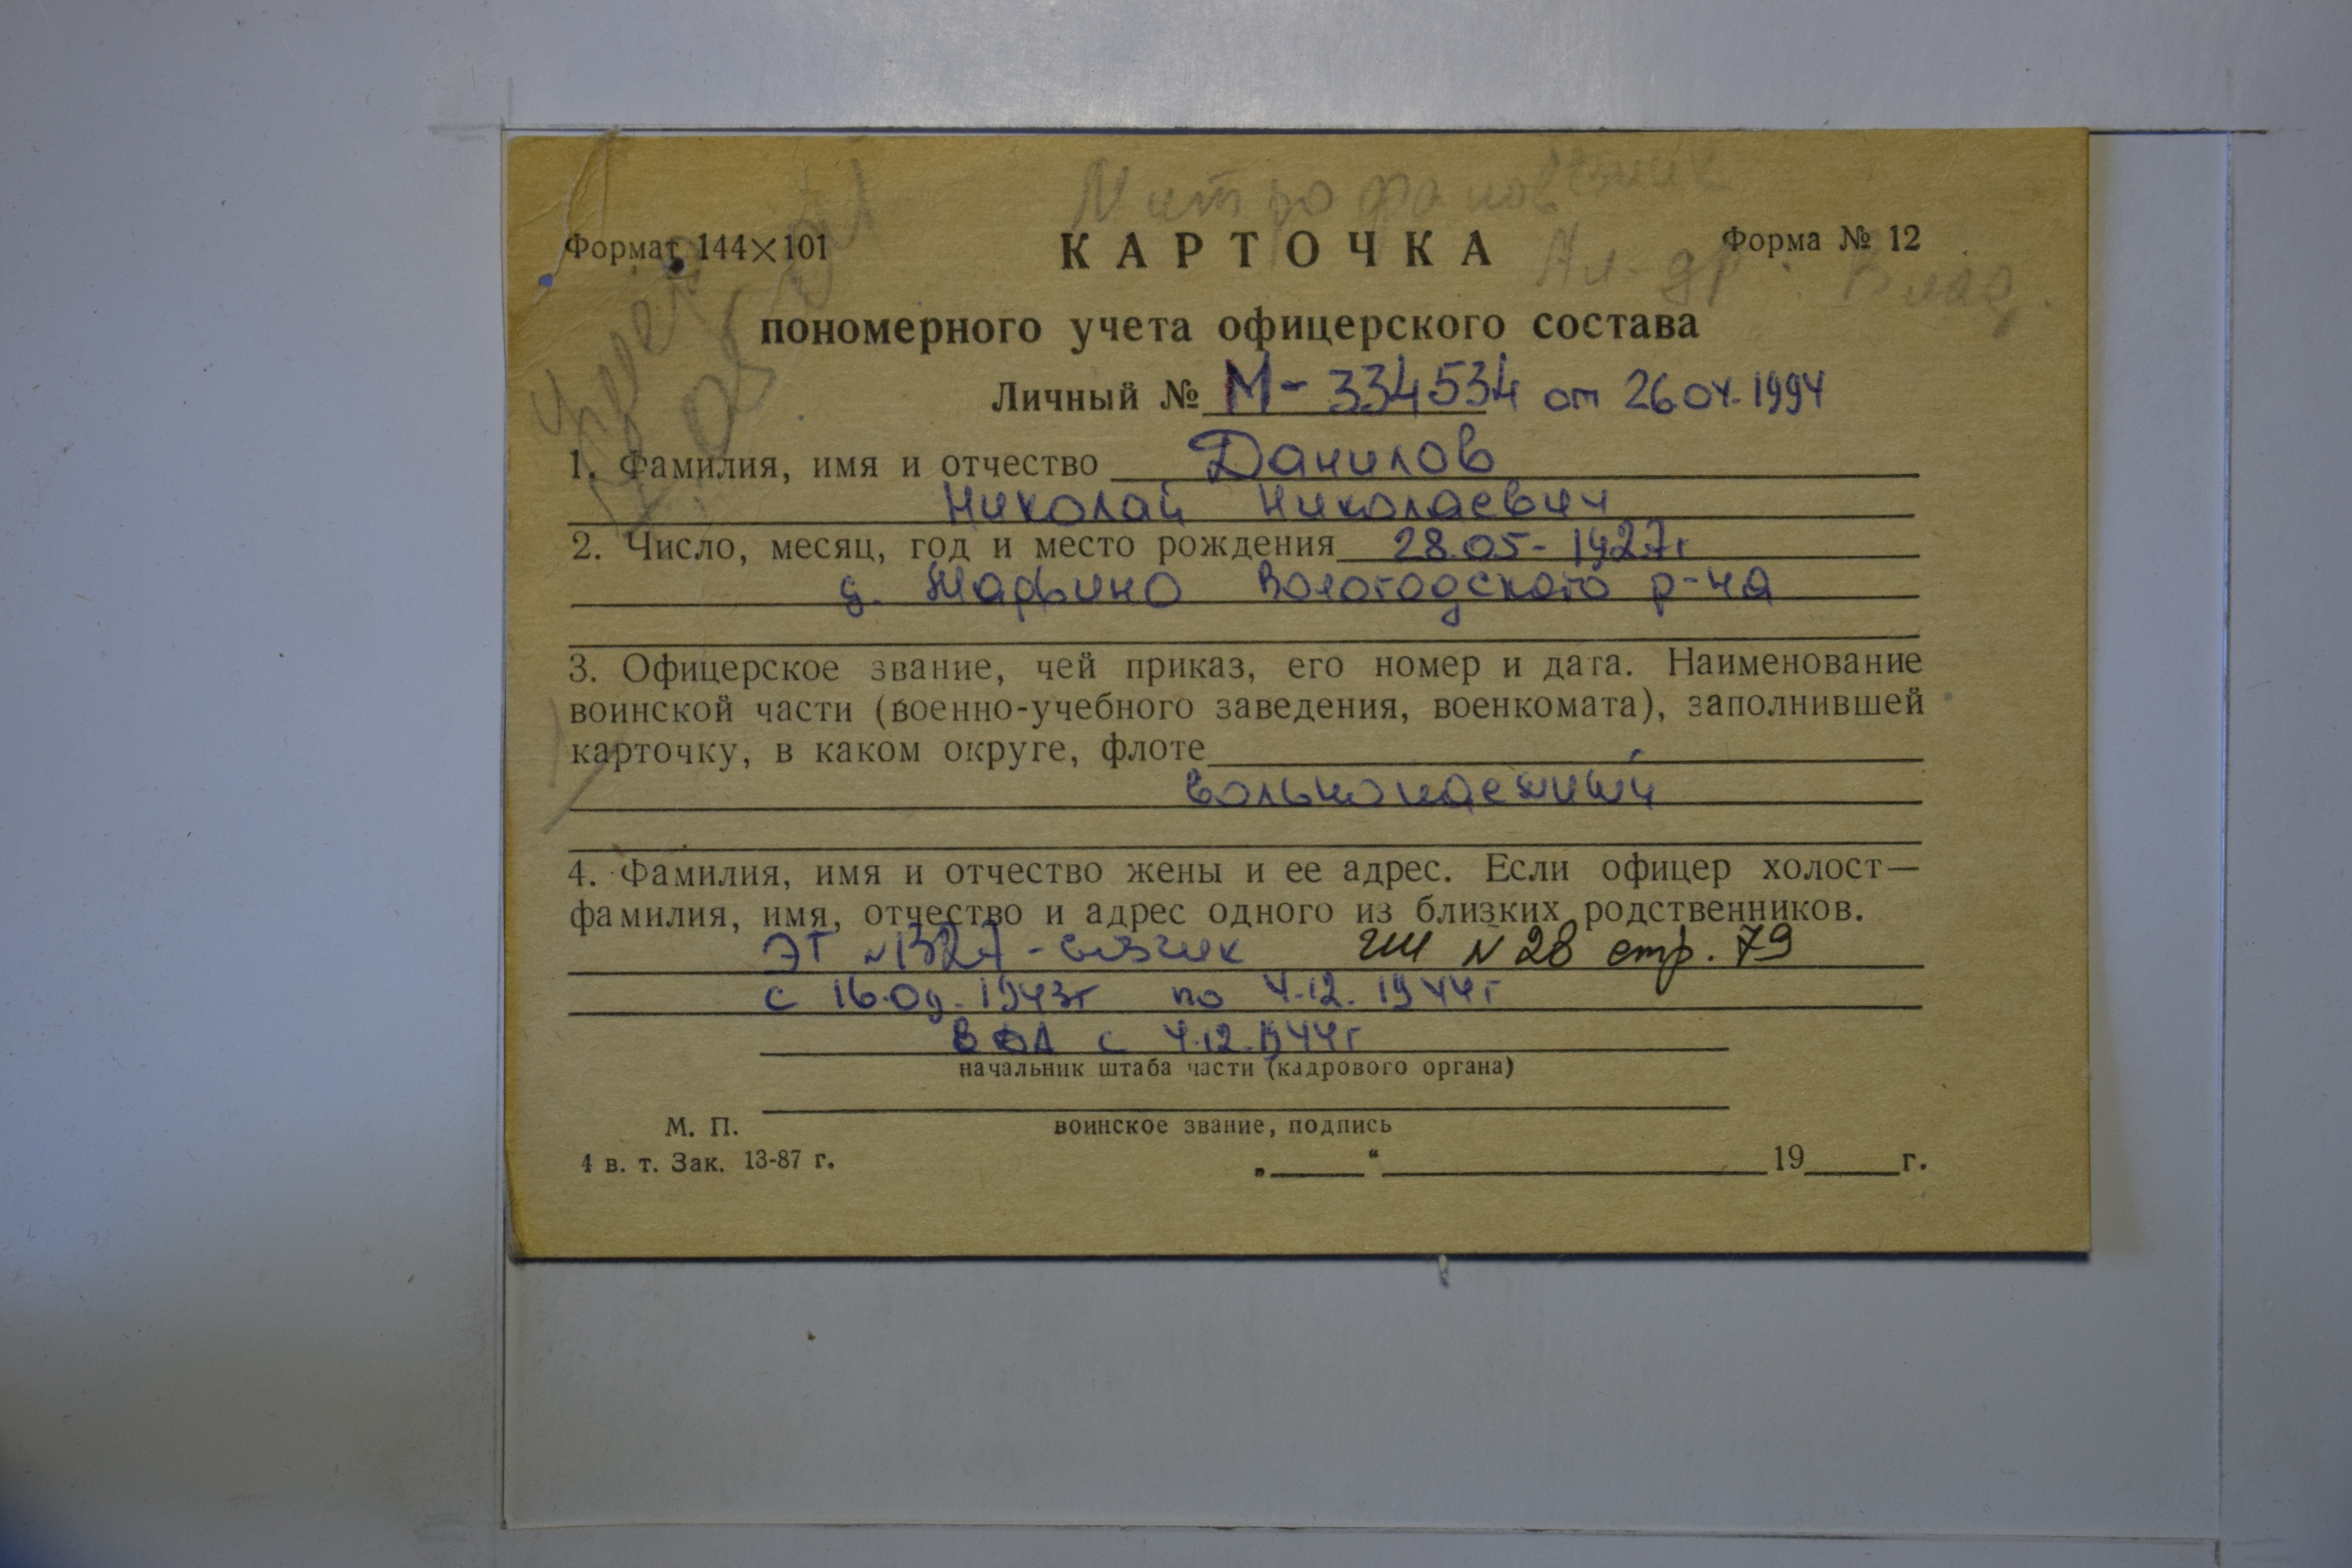 Митрофанов
Формат 144×101
КАРТОЧКА
Форма № 12
Ал-др. Влад.
пономерного учета офицерского состава
Личный № М-334534 от 26.04.1994
1. Фамилия, имя и отчество Данилов
Николай Николаевич
2. Число, месяц, год и место рождения 28.05-1927г
д. Марфино Вологодского р-на
3. Офицерское звание, чей приказ, его номер и дата. Наименование
воинской части (военно-учебного заведения, военкомата), заполнившей
карточку, в каком округе, флоте
вольнонаемный
4. Фамилия, имя и отчество жены и ее адрес. Если офицер холост—
фамилия, имя, отчество и адрес одного из близких родственников.
ЭГ №1327 - возчик № 28 стр. 79
с 16.09.1943г по 4.12.1944г
с 4.12.1944г
начальник штаба части (кадрового органа)
воинское звание, подпись
М. П.
4 в. т. Зак. 13-87 г.
„ “ 19 г.